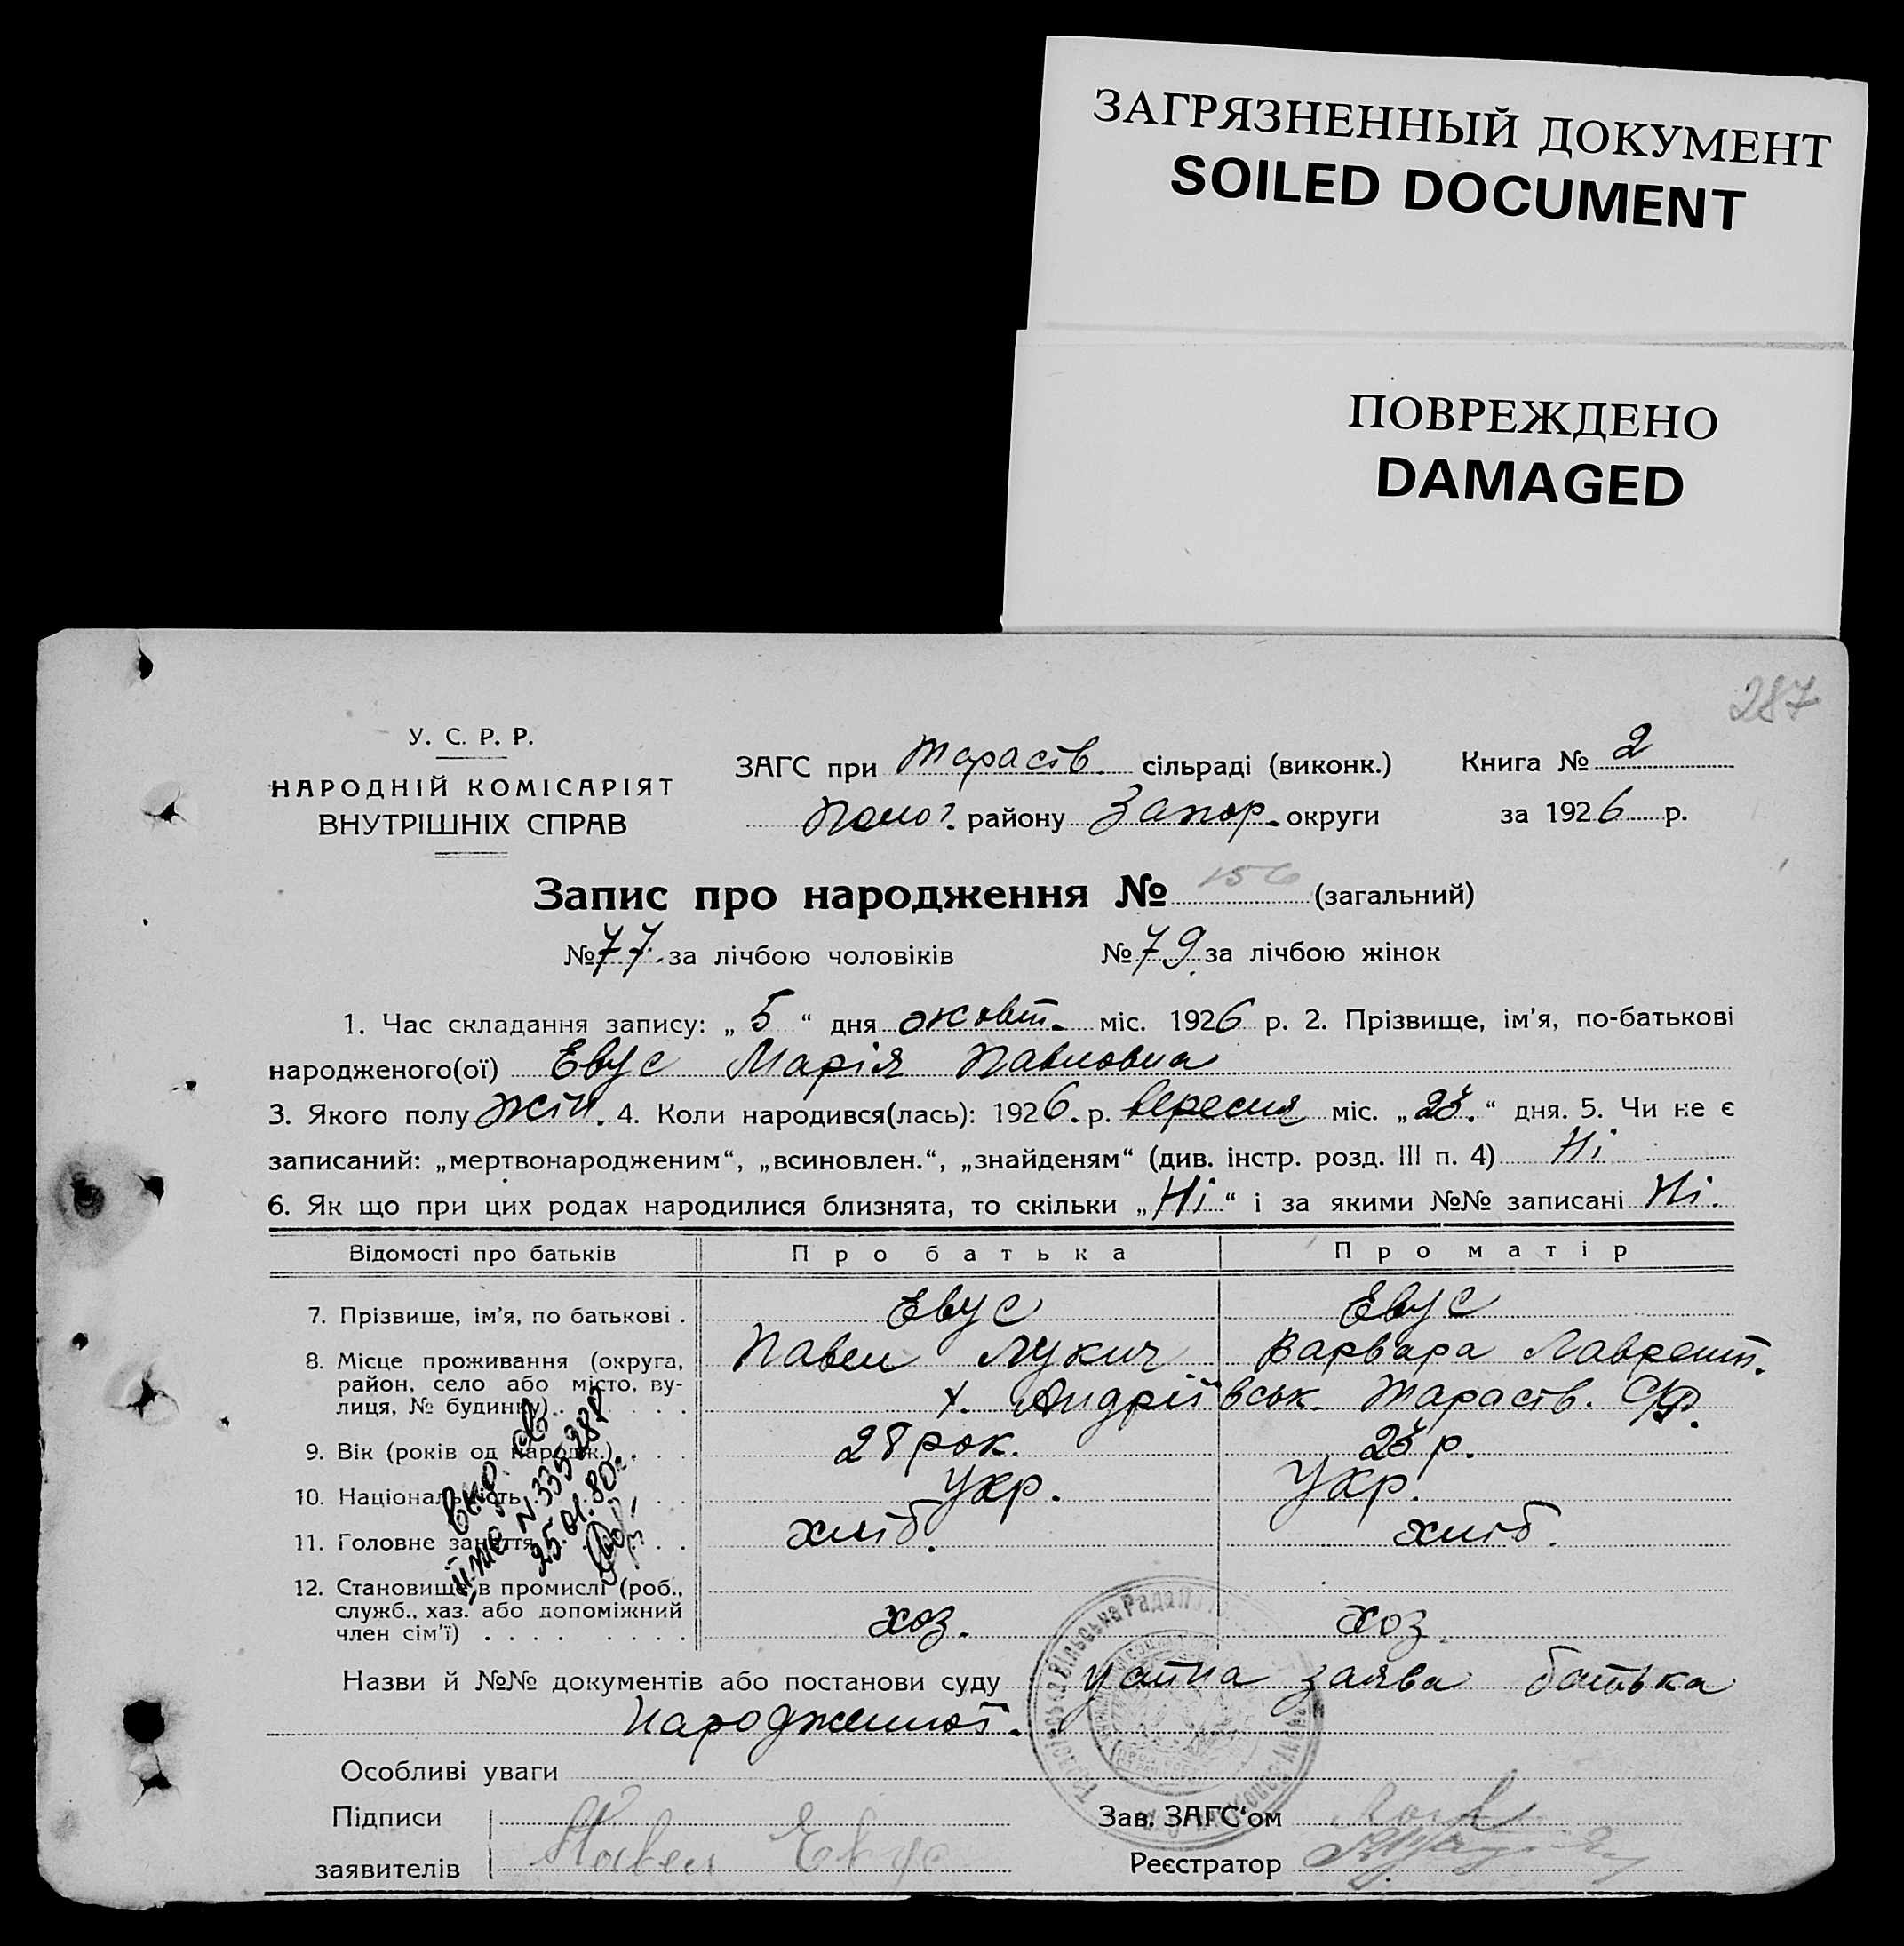 ЗАГРЯЗНЕННЫЙ ДОКУМЕНТ
SOILED DOCUMENT
ПОВРЕЖДЕНО
DAMAGED
287
У. С. Р. Р.
НАРОДНІЙ КОМІСАРІЯТ
ВНУТРІШНІХ СПРАВ
ЗАГС при Тарасів. сільраді (виконк.)
Полог. району Запор. округи
Книга № 2
за 1926 р.
Запис про народження № 156 (загальний)
№ 77. за лічбою чоловіків № 79 за лічбою жінок
1. Час складання запису: „ 5 “ дня жовт. міс. 1926 р. 2. Прізвище, ім'я, по-батькові
народженого(ої) Евус Марія Павловна
3. Якого полу жін. 4. Коли народився(лась): 1926. р. вересня міс. „23.“ дня. 5. Чи не є
записаний: „мертвонародженим“, „всиновлен.“, „знайденям“ (див. інстр. розд. III п. 4) Ні
6. Як що при цих родах народилися близнята, то скільки „Ні“ і за якими №№ записані Ні.
Відомості про батьків Про батька Про матір
7. Прізвище, ім'я, по батькові . Евус Евус
8. Місце проживання (округа, Павел Лукич Варвара Лаврент.
район, село або місто, ву-
лиця, № будинку) . . . . . х. Андріївськ. Тарасів. С/р.
9. Вік (років од народж.) . . . 28 рок. 23 р.
10. Національність . . . Укр. Укр.
11. Головне заняття . . . хліб. хліб.
12. Становище в промислі (роб.,
служб., хаз. або допоміжний
член сім'ї) . . . . . . . . хоз. хоз.
N 335287
25.01.80г.
Назви й №№ документів або постанови суду устна заява батька
народженної.
Особливі уваги
Підписи
заявителів Павел Евус
Зав. ЗАГС'ом
Реєстратор